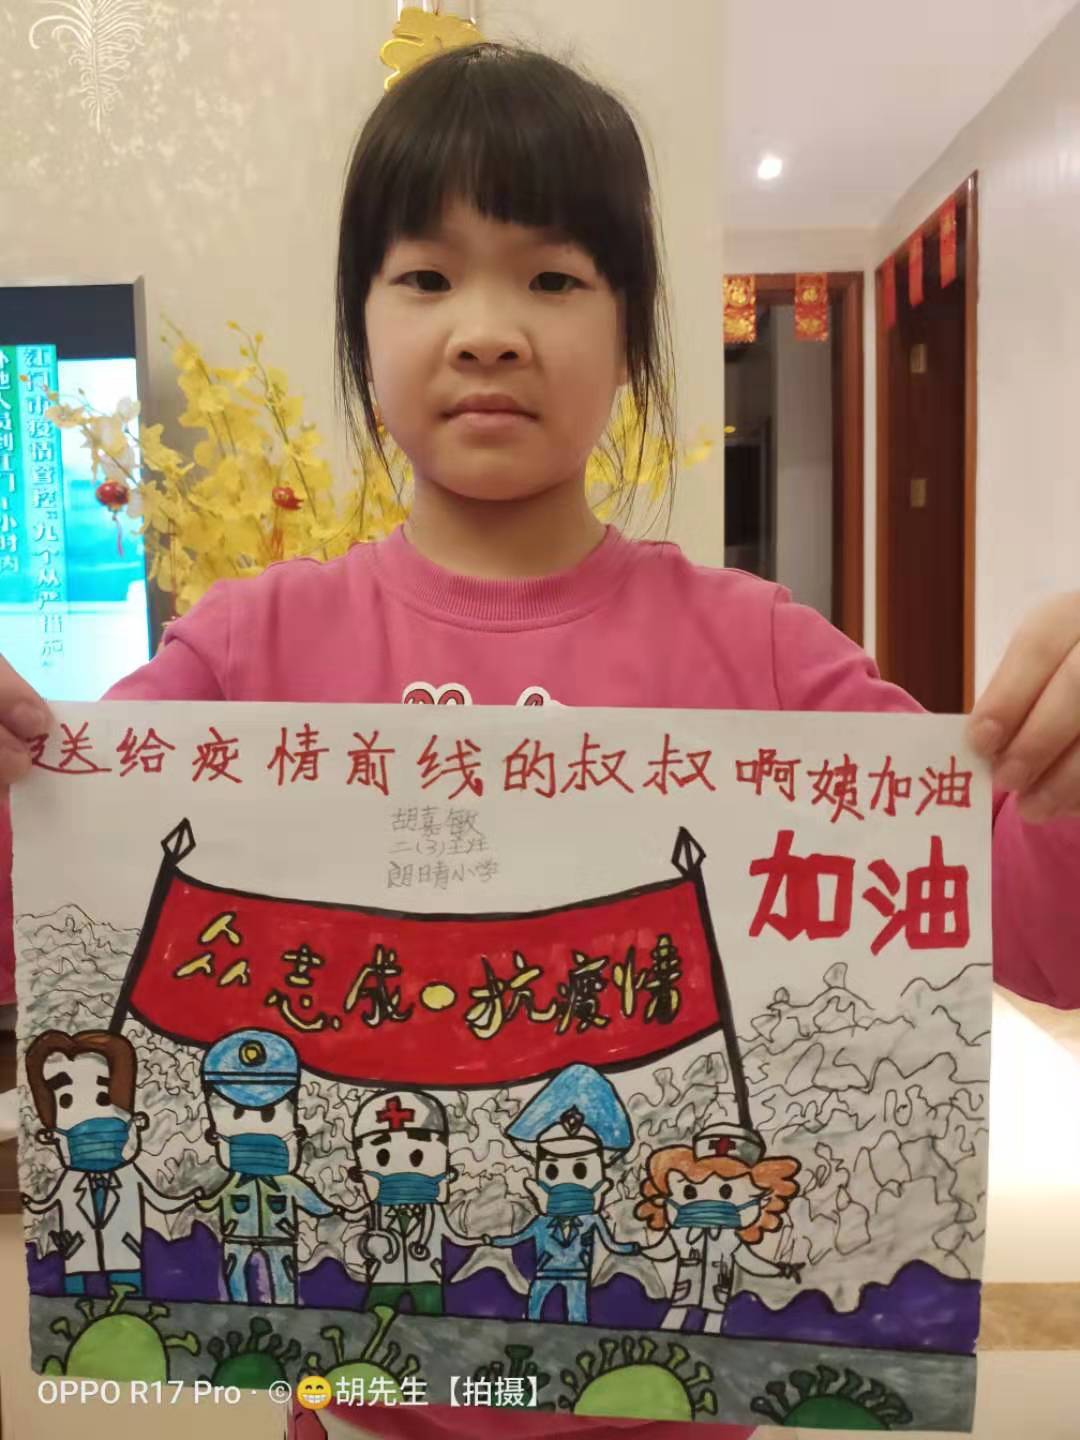 江门市疫情管控“九个从严措施”
外地人员到江门
小时内
送给疫情前线的叔叔啊姨加油
胡嘉敏
二(3)班
朗晴小学
加油
众志成•抗疫情
OPPO R17 Pro · ©😁胡先生【拍摄】